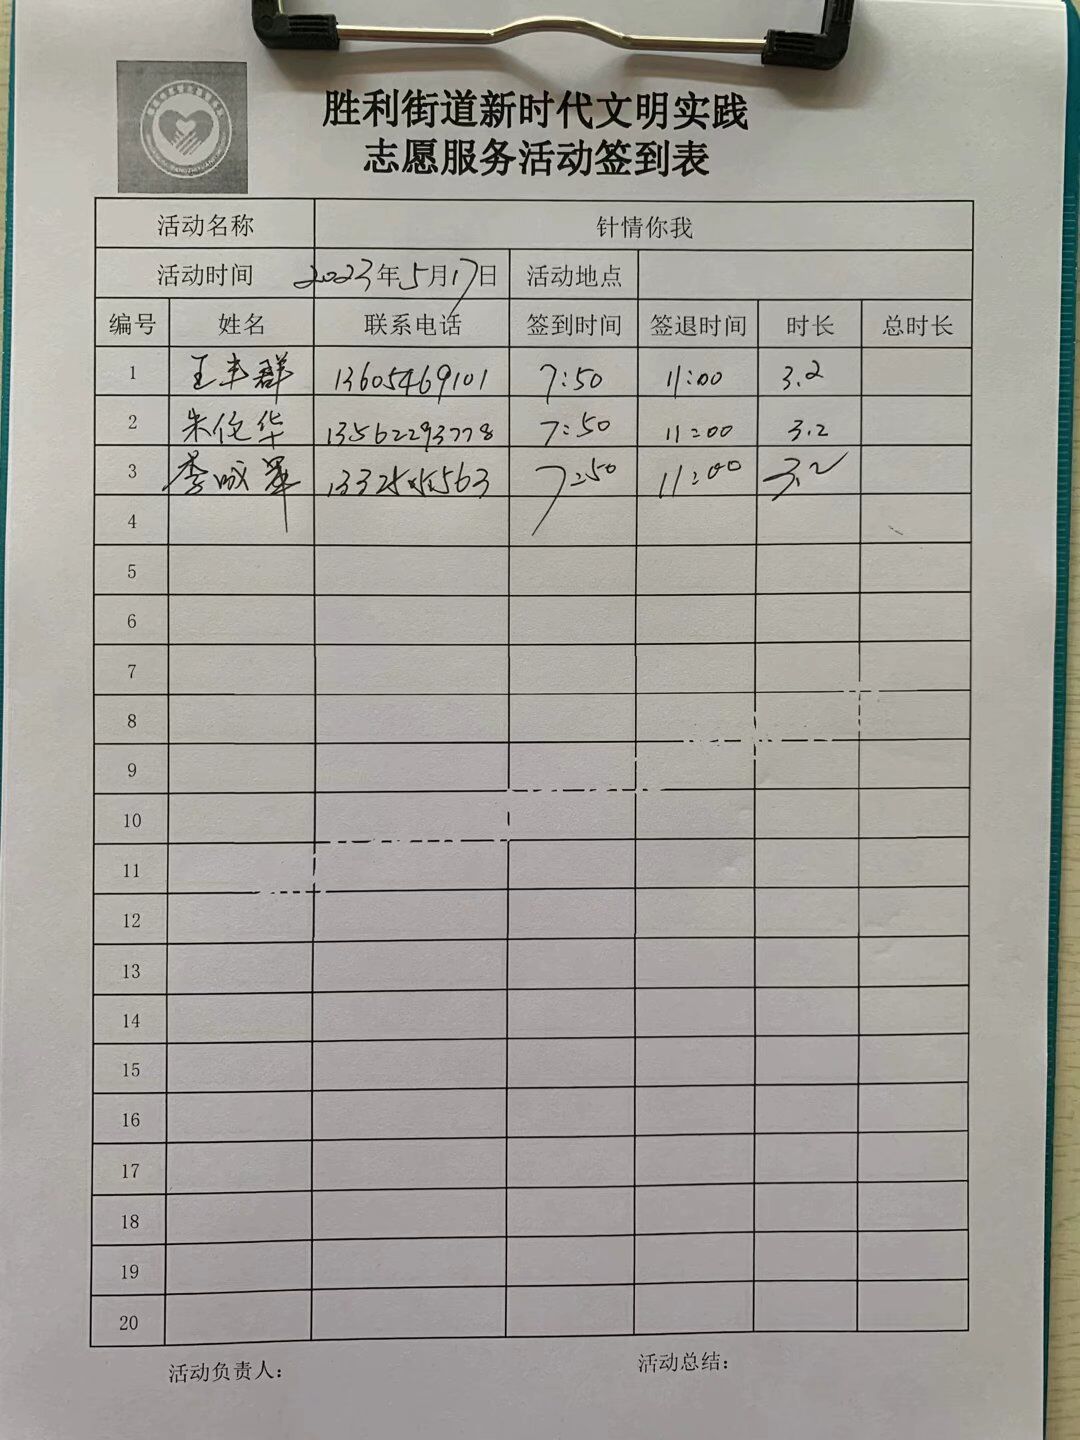 胜利街道新时代文明实践
志愿服务活动签到表
活动名称 针情你我
活动时间 2023年5月17日 活动地点
编号 姓名 联系电话 签到时间 签退时间 时长 总时长
1 王丰群 13605469101 7:50 11:00 3.2
2 朱伦华 13562293778 7:50 11:00 3.2
3 李 7:50 11:00 3.2
4
5
6
7
8
9
10
11
12
13
14
15
16
17
18
19
20
活动负责人: 活动总结: